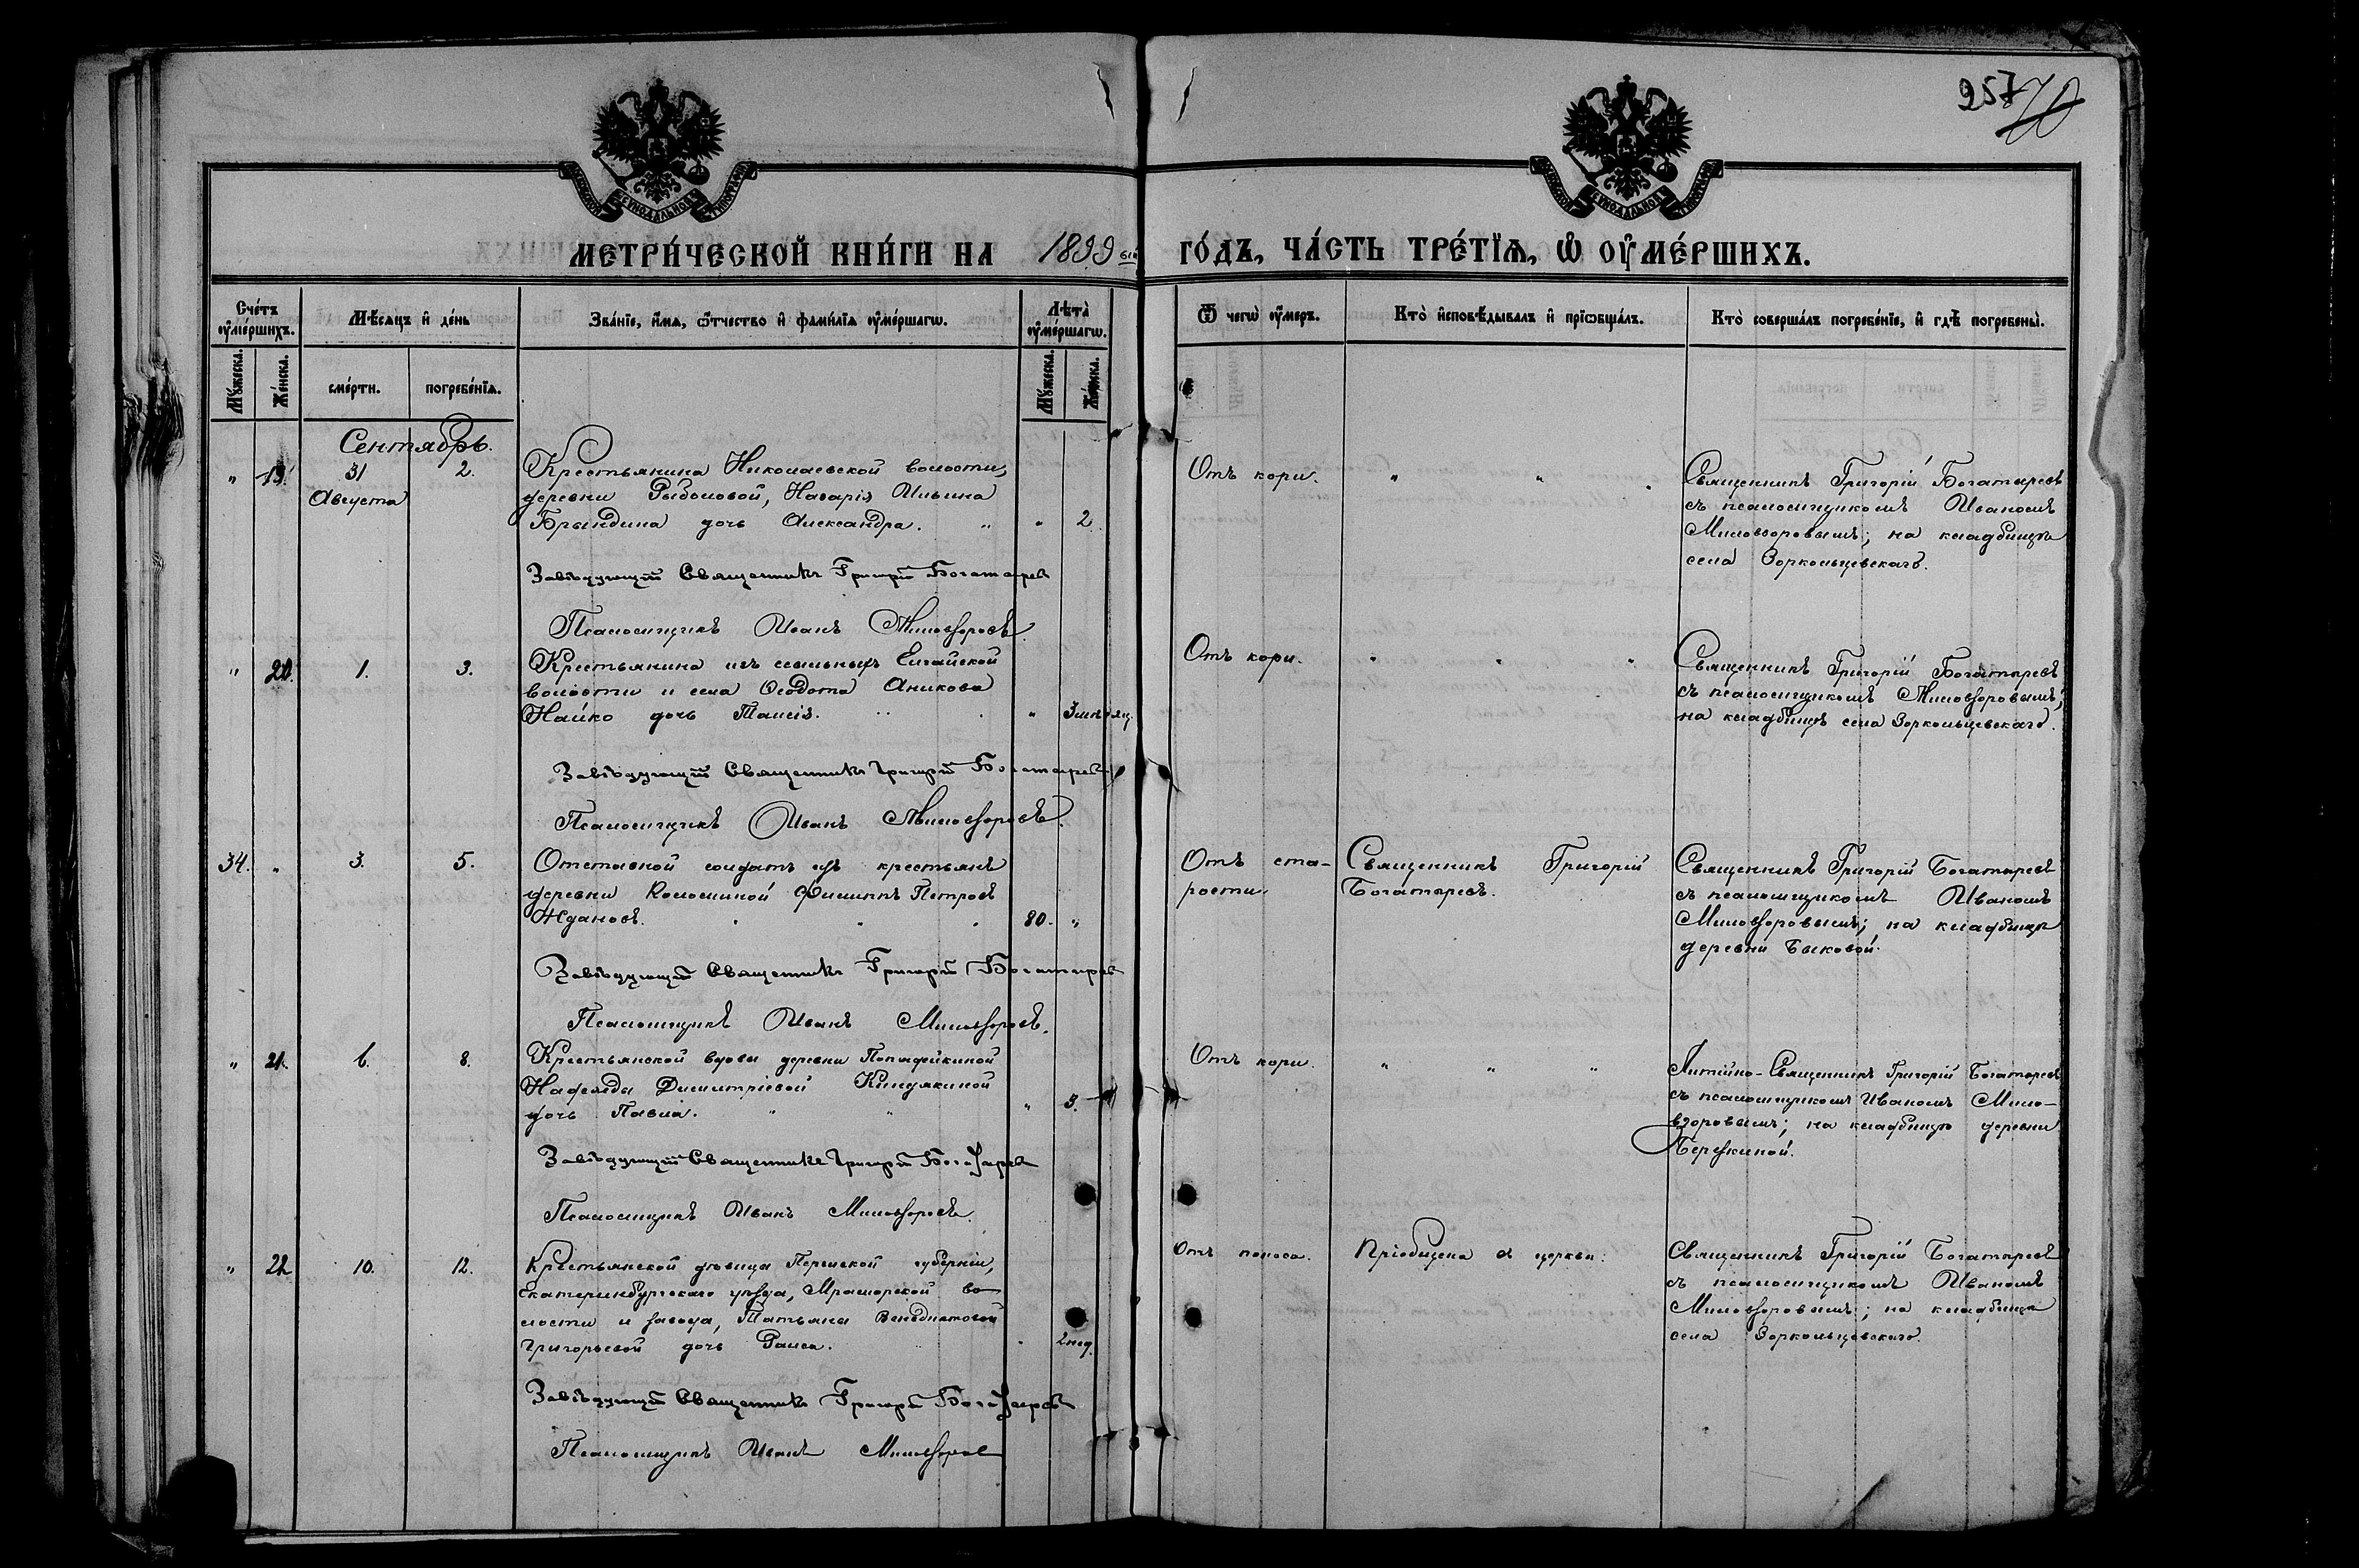 257
70
СѴНОДАЛЬНОЙ ТИПОГРАФІИ
СѴНОДАЛЬНОЙ ТИПОГРАФІИ
МЕТРИ́ЧЕСКОЙ КНИ́ГИ НА 1899 ГО́ДЪ, ЧА́СТЬ ТРЕ́ТЇѦ, Ѡ ОУ҆МЕ́РШИХЪ.
Сче́тъ оу҆ме́ршихъ.
Мѣ́сяцъ и҆ де́нь
Зва́нїе, и҆́мѧ, ѻ҆́тчество и҆ фами́лїѧ оу҆ме́ршагѡ.
Лѣ́та̀ оу҆ме́ршагѡ.
Ѿ чегѡ̀ оу҆́меръ.
Кто̀ и҆сповѣ́дывалъ и҆ прїѡбща́лъ.
Кто̀ соверша́лъ погребе́нїе, и҆ гдѣ̀ погребены̀.
Мꙋ́жеска.
Же́нска.
сме́рти.
погребе́нїѧ.
Мꙋ́жеска.
Же́нска.
Сентябрь.
" 19. 31 2.
Августа
Крестьянина Николаевской волости,
деревни Рыбаловой, Назарія Ильина
Брындина дочь Александра. " " 2
Отъ кори. " "
Священникъ Григорій Богатыревъ
съ псаломщикомъ Иваномъ
Миловзоровымъ; на кладбищѣ
села Зоркольцевскаго.
Завѣдующій Священникъ Григорій Богатыревъ
Псаломщикъ Иванъ Миловзоровъ.
" 20. 1. 3.
Крестьянина изъ ссыльныхъ Елгайской
волости и села Ѳеодота Аникова
Найко дочь Таисія. " 3 мѣсяц.
Отъ кори. " " "
Священникъ Григорій Богатыревъ
съ псаломщикомъ Миловзоровымъ;
на кладбищѣ села Зоркольцевскаго.
Завѣдующій Священникъ Григорій Богатыревъ
Псаломщикъ Иванъ Миловзоровъ.
34. " 3. 5.
Отставной солдатъ изъ крестьянъ
деревни Коломиной Филиппъ Петровъ
Ждановъ. 80. "
Отъ ста-
рости.
Священникъ Григорій
Богатыревъ.
Священникъ Григорій Богатыревъ
съ псаломщикомъ Иваномъ
Миловзоровымъ; на кладбищѣ
деревни Быковой.
Завѣдующій Священникъ Григорій Богатыревъ
Псаломщикъ Иванъ Миловзоровъ.
" 21. 6. 8.
Крестьянской вдовы деревни
Надежды Димитріевой Киндякиной
дочь Павла. " " " 3.
Отъ кори. " " "
Литійно-Священникъ Григорій Богатыревъ
съ псаломщикомъ Иваномъ Мило-
взоровымъ; на кладбищѣ деревни
Березкиной.
Завѣдующій Священникъ Григорій Богатыревъ
Псаломщикъ Иванъ Миловзоровъ.
" 22 10. 12.
Крестьянской дѣвицы Пермской губерніи,
Екатеринбургскаго уѣзда, Мраморской во-
лости и завода, Татьяны Венедиктовой
Григорьевой дочь Раиса. 2 нед.
Отъ поноса.
Пріобщена въ церкви.
Священникъ Григорій Богатыревъ
съ псаломщикомъ Иваномъ
Миловзоровымъ; на кладбищѣ
села Зоркольцевскаго.
Завѣдующій Священникъ Григорій Богатыревъ
Псаломщикъ Иванъ Миловзоровъ